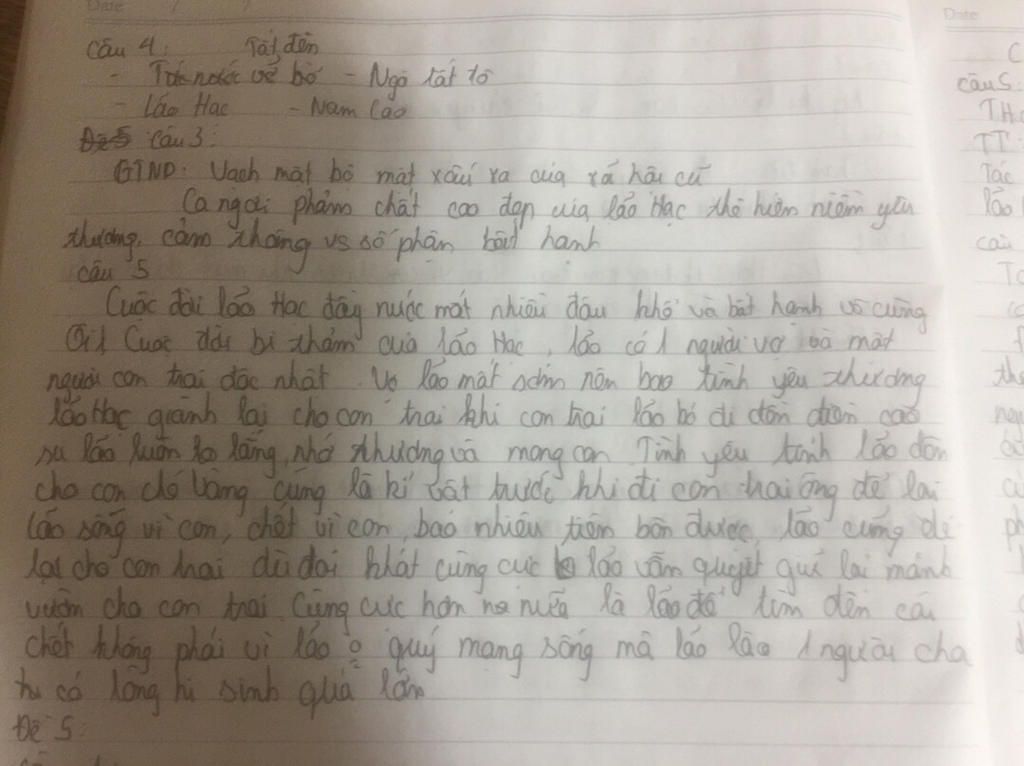 Date
Câu 4: Tắt đèn
- Tức nước vỡ bờ - Ngô tất tố
- Lão Hạc - Nam Cao
Đề 5 Câu 3:
GTND: Vạch mặt bộ mặt xấu xa của xã hội cũ
Ca ngợi phẩm chất cao đẹp của lão Hạc thể hiện niềm yêu
thương, cảm thông vs số phận bất hạnh
câu 5
Cuộc đời lão Hạc đầy nước mắt nhiều đâu khổ và bất hạnh vô cùng
Cuộc đời bi thảm của lão Hạc, lão có 1 người vợ và một
người con trai độc nhất. Vợ lão mất sớm nên bao tình yêu thương
lão Hạc giành lại cho con trai khi con trai lão bỏ đi đồn điền cao
su lão luôn lo lắng, nhớ thương và mong con Tình yêu lão dồn
cho con chó Vàng cũng là kỉ vật trước khi đi con trai ông để lại
lão sống vì con, chết vì con, bao nhiêu tiền bòn được, lão cũng để
lại cho con trai dù đói khát cùng cực lão vẫn quyết giữ lại mảnh
vườn cho con trai. Cùng cực hơn nữa là lão đã tìm đến cái
chết không phải vì lão o quý mạng sống mà lão là 1 người cha
có lòng hi sinh quá lớn
Đề 5:
Date
C
câu 5:
TT:
Tác
lão
câu